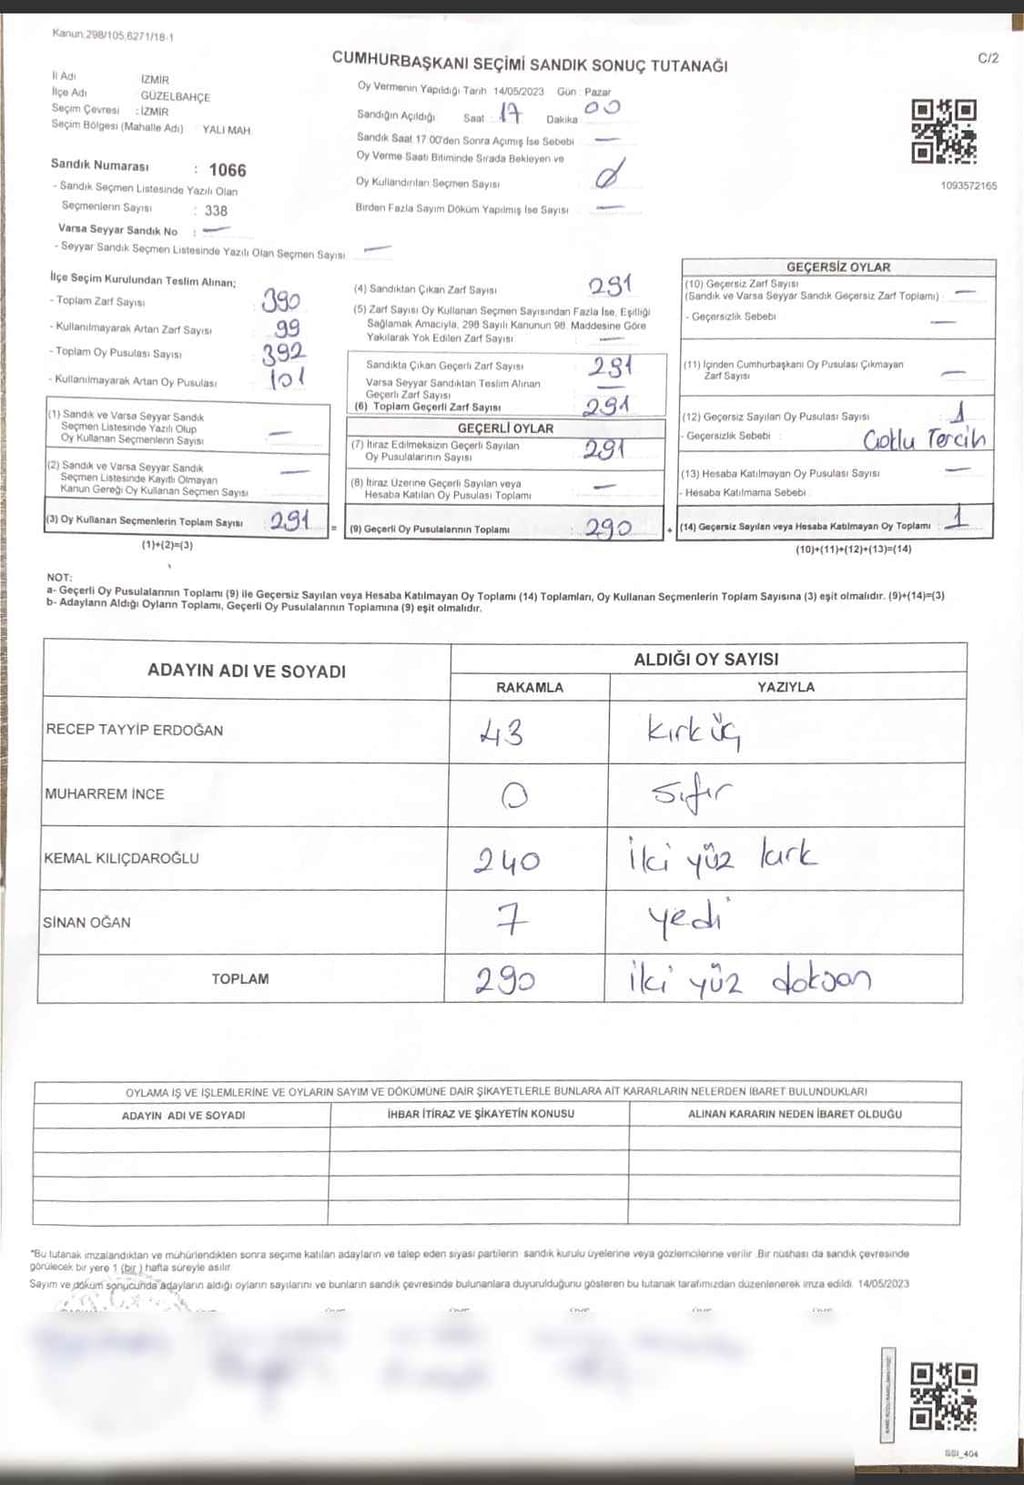 Kanun:298/105,6271/18-1
CUMHURBAŞKANI SEÇİMİ SANDIK SONUÇ TUTANAĞI
C/2
İl Adı İZMİR
İlçe Adı GÜZELBAHÇE
Seçim Çevresi : İZMİR
Seçim Bölgesi (Mahalle Adı) YALI MAH.
Sandık Numarası : 1066
- Sandık Seçmen Listesinde Yazılı Olan
Seçmenlerin Sayısı : 338
Varsa Seyyar Sandık No : —
- Seyyar Sandık Seçmen Listesinde Yazılı Olan Seçmen Sayısı —
Oy Vermenin Yapıldığı Tarih 14/05/2023 Gün : Pazar
Sandığın Açıldığı Saat : 17 Dakika 00
Sandık Saat 17.00'den Sonra Açımış İse Sebebi —
Oy Verme Saati Bitiminde Sırada Bekleyen ve
Oy Kullandırılan Seçmen Sayısı
Birden Fazla Sayım Döküm Yapılmış İse Sayısı —
1093572165
İlçe Seçim Kurulundan Teslim Alınan;
- Toplam Zarf Sayısı 390
- Kullanılmayarak Artan Zarf Sayısı 99
- Toplam Oy Pusulası Sayısı 392
- Kullanılmayarak Artan Oy Pusulası 101
(1) Sandık ve Varsa Seyyar Sandık
Seçmen Listesinde Yazılı Olup
Oy Kullanan Seçmenlerin Sayısı —
(2) Sandık ve Varsa Seyyar Sandık
Seçmen Listesinde Kayıtlı Olmayan
Kanun Gereği Oy Kullanan Seçmen Sayısı —
(3) Oy Kullanan Seçmenlerin Toplam Sayısı 291
(1)+(2)=(3)
(4) Sandıktan Çıkan Zarf Sayısı 291
(5) Zarf Sayısı Oy Kullanan Seçmen Sayısından Fazla İse, Eşitliği
Sağlamak Amacıyla, 298 Sayılı Kanunun 98. Maddesine Göre
Yakılarak Yok Edilen Zarf Sayısı —
Sandıkta Çıkan Geçerli Zarf Sayısı 291
Varsa Seyyar Sandıktan Teslim Alınan
Geçerli Zarf Sayısı —
(6) Toplam Geçerli Zarf Sayısı 291
GEÇERLİ OYLAR
(7) İtiraz Edilmeksizin Geçerli Sayılan
Oy Pusulalarının Sayısı 291
(8) İtiraz Üzerine Geçerli Sayılan veya
Hesaba Katılan Oy Pusulası Toplamı —
= (9) Geçerli Oy Pusulalarının Toplamı : 290
GEÇERSİZ OYLAR
(10) Geçersiz Zarf Sayısı
(Sandık ve Varsa Seyyar Sandık Geçersiz Zarf Toplamı) —
- Geçersizlik Sebebi —
(11) İçinden Cumhurbaşkanı Oy Pusulası Çıkmayan
Zarf Sayısı —
(12) Geçersiz Sayılan Oy Pusulası Sayısı 1
- Geçersizlik Sebebi : Çoklu Tercih
(13) Hesaba Katılmayan Oy Pusulası Sayısı —
- Hesaba Katılmama Sebebi
+ (14) Geçersiz Sayılan veya Hesaba Katılmayan Oy Toplamı 1
(10)+(11)+(12)+(13)=(14)
NOT:
a- Geçerli Oy Pusulalarının Toplamı (9) ile Geçersiz Sayılan veya Hesaba Katılmayan Oy Toplamı (14) Toplamları, Oy Kullanan Seçmenlerin Toplam Sayısına (3) eşit olmalıdır. (9)+(14)=(3)
b- Adayların Aldığı Oyların Toplamı, Geçerli Oy Pusulalarının Toplamına (9) eşit olmalıdır.
ADAYIN ADI VE SOYADI
ALDIĞI OY SAYISI
RAKAMLA YAZIYLA
RECEP TAYYİP ERDOĞAN 43 kırk üç
MUHARREM İNCE 0 sıfır
KEMAL KILIÇDAROĞLU 240 iki yüz kırk
SİNAN OĞAN 7 yedi
TOPLAM 290 iki yüz doksan
OYLAMA İŞ VE İŞLEMLERİNE VE OYLARIN SAYIM VE DÖKÜMÜNE DAİR ŞİKAYETLERLE BUNLARA AİT KARARLARIN NELERDEN İBARET BULUNDUKLARI
ADAYIN ADI VE SOYADI İHBAR İTİRAZ VE ŞİKAYETİN KONUSU ALINAN KARARIN NEDEN İBARET OLDUĞU
*Bu tutanak imzalandıktan ve mühürlendikten sonra seçime katılan adayların ve talep eden siyasi partilerin sandık kurulu üyelerine veya gözlemcilerine verilir. Bir nüshası da sandık çevresinde
görülecek bir yere 1 (bir) hafta süreyle asılır.
Sayım ve döküm sonucunda adayların aldığı oyların sayılarını ve bunların sandık çevresinde bulunanlara duyurulduğunu gösteren bu tutanak tarafımızdan düzenlenerek imza edildi. 14/05/2023
SSI_404